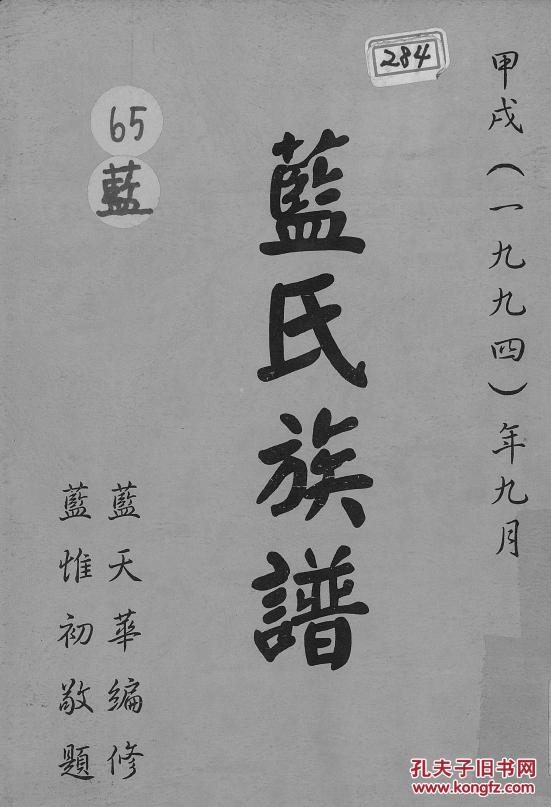 甲戌(一九九四)年九月
284
藍氏族譜
65
藍
藍天華編修
藍惟初敬題
孔夫子旧书网
www.kongfz.com